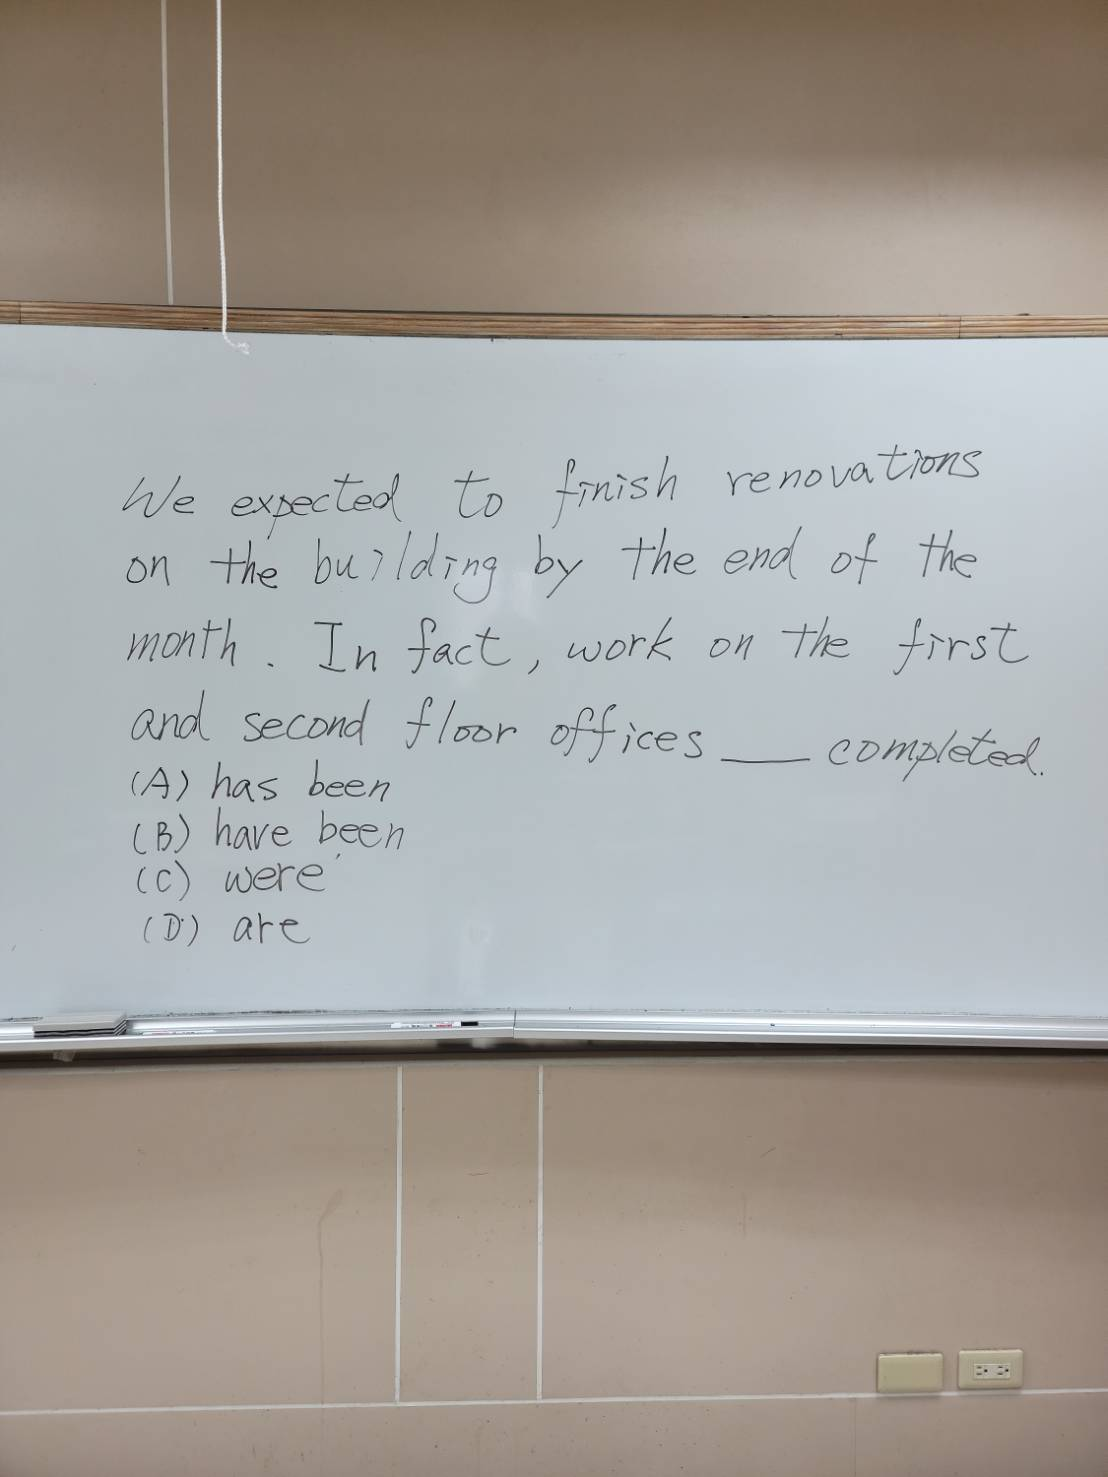 We expected to finish renovations
on the building by the end of the
month. In fact, work on the first
and second floor offices ___ completed.
(A) has been
(B) have been
(C) were
(D) are